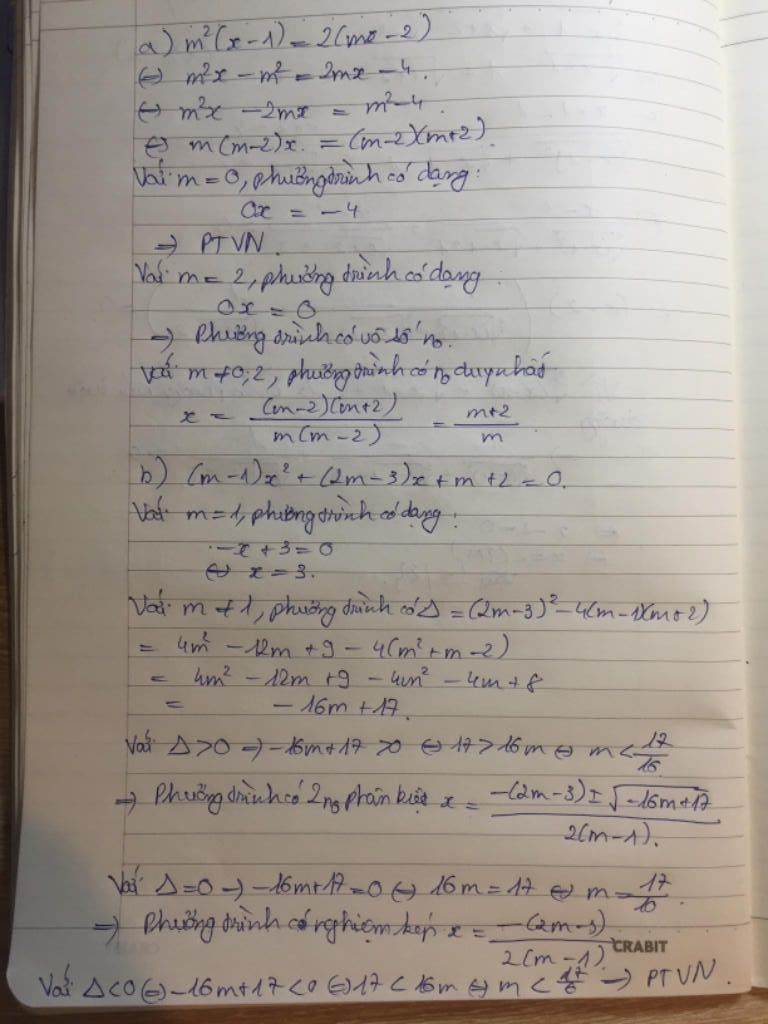 a) m²(x-1) = 2(mx-2)
⇔ m²x - m² = 2mx - 4.
⇔ m²x - 2mx = m²-4.
⇔ m(m-2)x. = (m-2)(m+2).
Với m = 0, phương trình có dạng:
0x = -4
⇒ PTVN.
Với m = 2, phương trình có dạng
0x = 0
⇒ Phương trình có vô số n₀.
Với m ≠ 0; 2, phương trình có n₀ duy nhất
x = \frac{(m-2)(m+2)}{m(m-2)} = \frac{m+2}{m}.
b) (m-1)x² + (2m-3)x + m + 2 = 0.
Với m = 1, phương trình có dạng:
-x + 3 = 0
⇔ x = 3.
Với m ≠ 1, phương trình có Δ = (2m-3)² - 4(m-1)(m+2)
= 4m² - 12m + 9 - 4(m² + m - 2)
= 4m² - 12m + 9 - 4m² - 4m + 8
= -16m + 17.
Với Δ > 0 ⇒ -16m+17 > 0 ⇔ 17 > 16m ⇔ m < \frac{17}{16}
⇒ Phương trình có 2 n₀ phân biệt x = \frac{-(2m-3) ± \sqrt{-16m+17}}{2(m-1)}.
Với Δ = 0 ⇒ -16m+17 = 0 ⇔ 16m = 17 ⇔ m = \frac{17}{16}.
⇒ Phương trình có nghiệm kép x = \frac{-(2m-3)}{2(m-1)}
CRABIT
Với Δ < 0 ⇔ -16m+17 < 0 ⇔ 17 < 16m ⇔ m < \frac{17}{6} ⇒ PTVN.